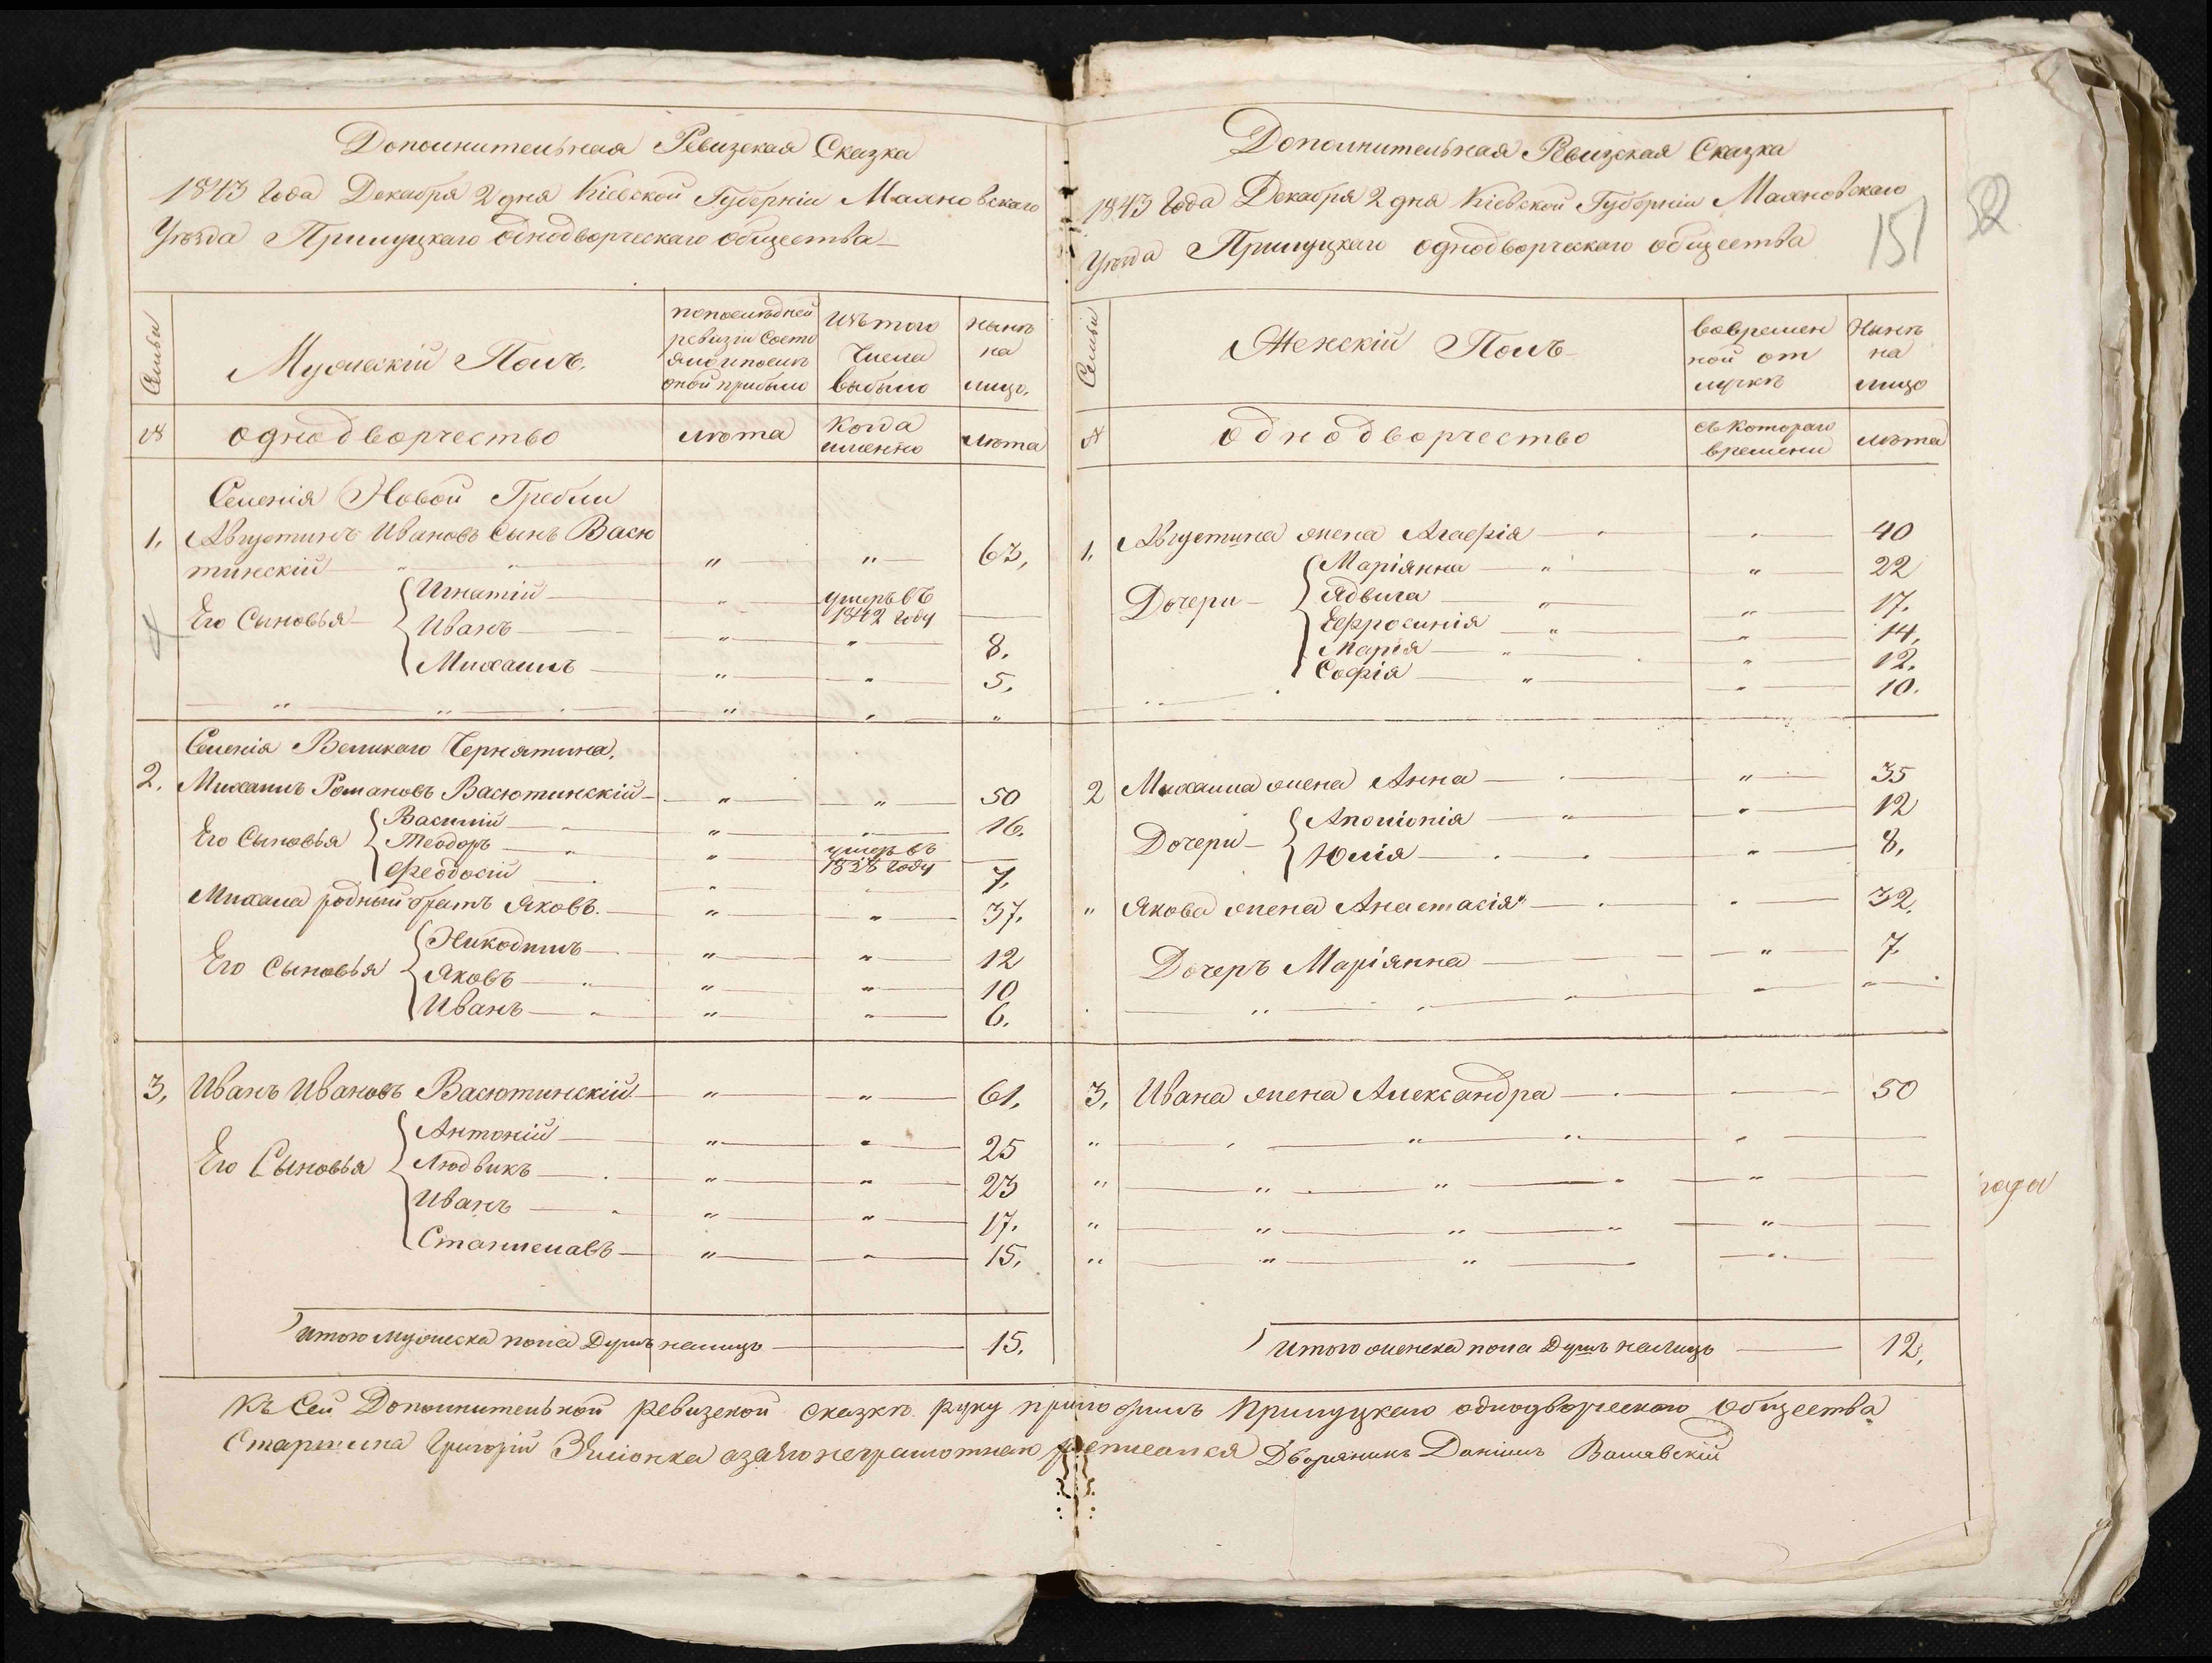 Дополнительная Ревизская Сказка
1843 Года Декабря 2 дня Кіевской Губерніи Махновскаго
Уѣзда Прилуцкаго однодворческаго общества
Семьи
Мужескій Полъ.
попослѣдней
ревизіи состо
яло и послѣ
оной прибыло
Изъ того
Числа
выбыло
нынѣ
на
лицо.
№
однодворчество
лѣта
Когда
именно
лѣта
Селенія Новой Гребли
1. Августинъ Ивановъ Сынъ Васю
тинскій " " 63,
Его Сыновья
Игнатій " умеръ въ
1842 году
Иванъ " " 8.
Михаилъ " " 5.
Селенія Великаго Чернятина.
2. Михаилъ Романовъ Васютинскій " " 50
Его Сыновья
Василій " " 16.
Теодоръ " умеръ въ
1838 году
Феодосій " " 7.
Михаила родный братъ Яковъ. " " 37.
Его Сыновья
Никодимъ " " 12
Яковъ " " 10
Иванъ " " 6.
3, Иванъ Ивановъ Васютинскій " " 61,
Его Сыновья
Антоній " " 25
Людвикъ " " 23
Иванъ " " 17.
Станиславъ " " 15,
Итого мужеска пола Душъ налицо 15.
Дополнительная Ревизская Сказка
1843 Года Декабря 2 дня Кіевской Губерніи Махновскаго
Уѣзда Прилуцкаго однодворческаго общества
151
52
Семьи
Женскій Полъ
вовремен
ной от
лучкѣ
Нынѣ
на
лицо
№
однодворчество
съ котораго
времени
лѣта
1. Августина жена Агафія " 40
Дочери
Маріянна " 22
Ядвига " 17.
Евфросинія " 14,
Марія " 12.
Софія " 10.
2 Михаила жена Анна " 35
Дочери
Аполіонія " 12
Юлія " 8,
" Якова жена Анастасія " 32.
Дочеръ Маріянна " 7.
3, Ивана жена Александра 50
Итого женска пола Душъ налицо 12,
Къ Сей Дополнительной ревизской сказкѣ руку приложилъ Прилуцкаго однодворческаго общества
Старшина Григорій Зъліонка азаего неграмотнаго росписался Дворянинъ Даніилъ Вашавскій
года